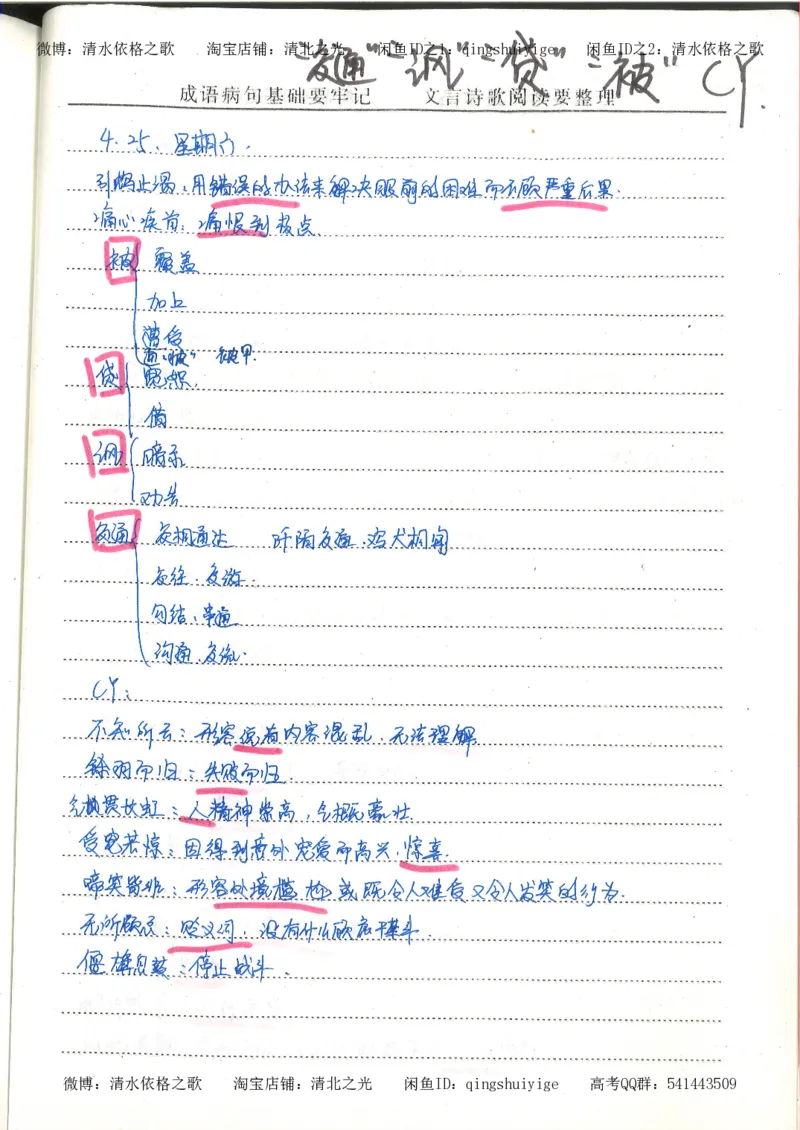 微博：清水依格之歌 淘宝店铺：清北之光 闲鱼ID之1：qingshuiyige 闲鱼ID之2：清水依格之歌
"交通" "讽" "贷" "被" CY.
成语病句基础要牢记 文言诗歌阅读要整理
4.25. 星期六.
引鸩止渴：用错误的办法来解决眼前的困难而不顾严重后果.
痛心疾首：痛恨到极点.
被 覆盖
加上
遭受
被甲.
贷 宽恕.
借
讽 暗示
劝告
交通 交相通达 阡陌交通.鸡犬相闻
交往.交游.
勾结.串通
沟通.交流.
CY：
不知所云：形容语言内容混乱.无法理解
铩羽而归：失败而归.
气贯长虹：人精神崇高,气概豪壮.
受宠若惊：因得到意外宠爱而高兴.惊喜.
啼笑皆非：形容处境尴尬或既令人难受又令人发笑的行为.
无所顾忌：贬义词，没有什么顾虑
偃旗息鼓：停止战斗.
微博：清水依格之歌 淘宝店铺：清北之光 闲鱼ID：qingshuiyige 高考QQ群：541443509